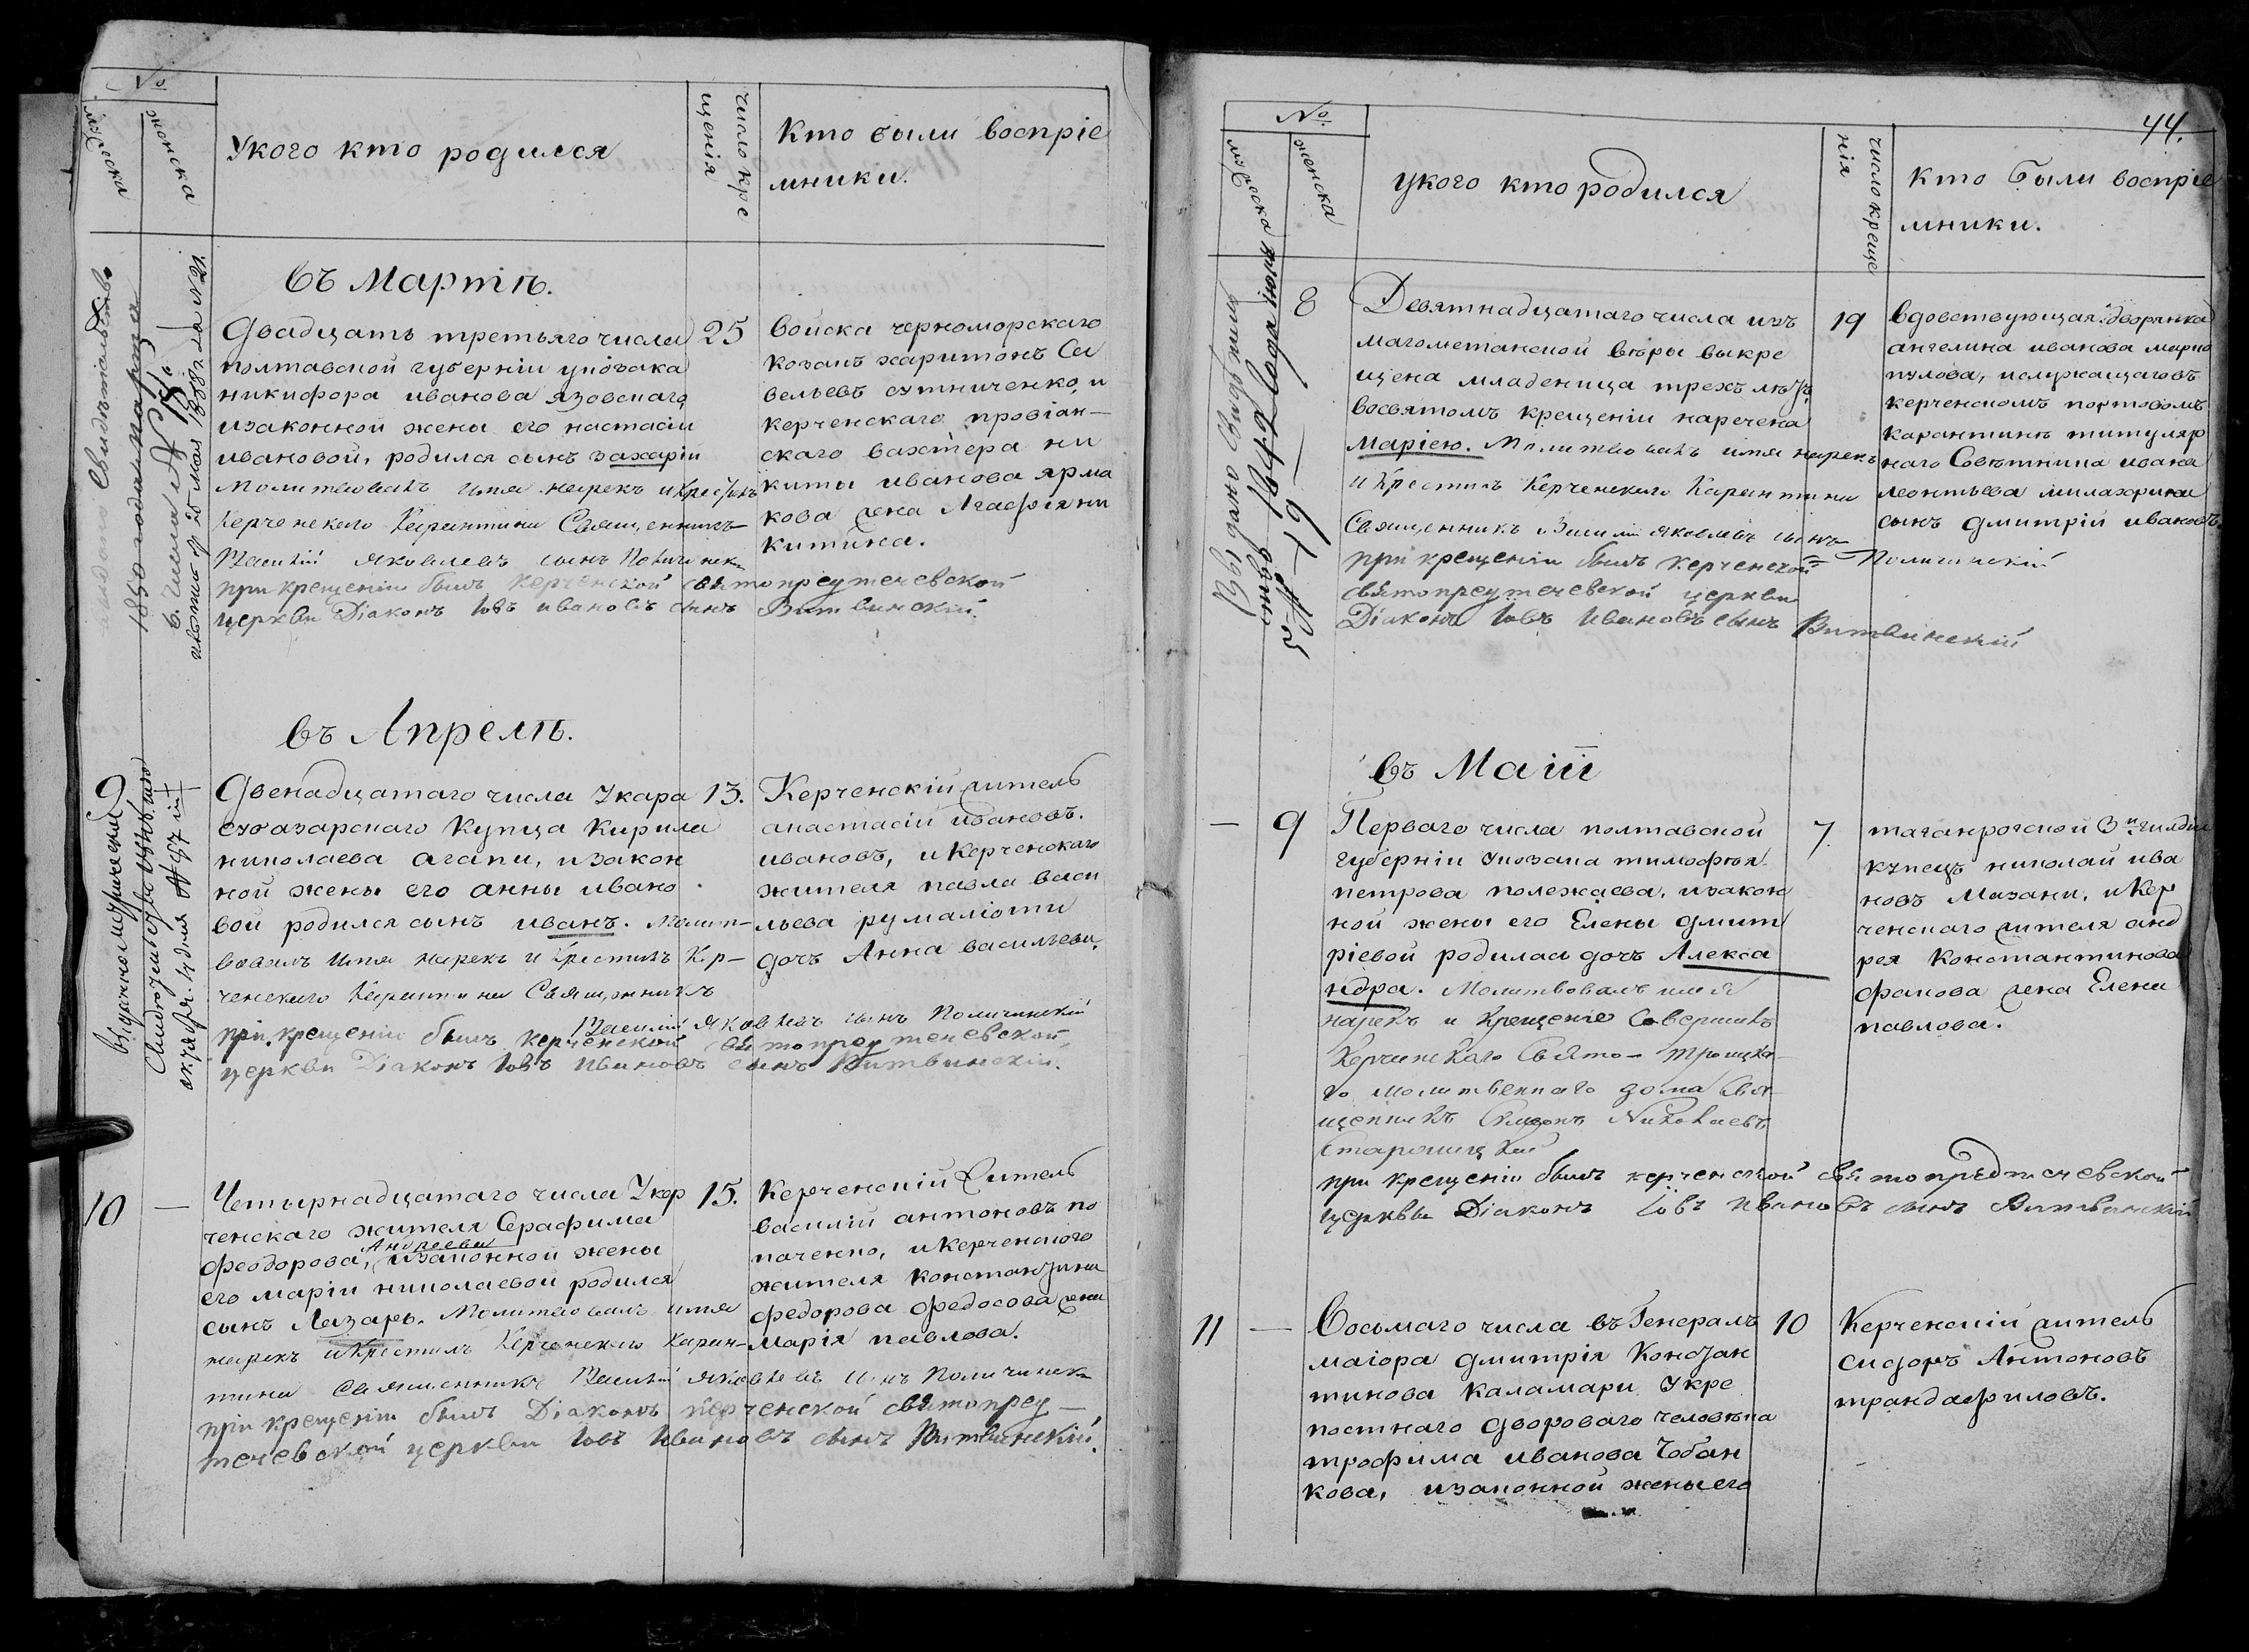 №
мужеска
женска
Укого кто родился
число кре
щенія
Кто были воспріе
мники.
въ Мартѣ.
8
Свидѣтельство
1850 года марта
6. числа №18.
и копія 25 мая 1888 г. за №21.
Двадцать третьяго числа
полтавской губерніи укозака
никифора иванова язовскаго
изаконной жены его настасіи
ивановой, родился сынъ захарій
Молитвовалъ имя нарекъ и крестилъ
Керченскаго Карантина Священникъ
Василій Яковлевъ сынъ Поличинскі
при крещеніи былъ Керченской святопредтечевской
церкви Діаконъ Іовъ ивановъ сынъ Витвинскій.
25
войска черноморскаго
козакъ харитонъ Са
вельевъ сутниченко, и
керченскаго провіан-
скаго вахтера ни
киты иванова ярма
кова жена Агафія ни
китина.
въ Апрелѣ.
9
выдано метрическое
Свидетельство 1844 года
октября 14 дня №97й
Двенадцатаго числа Укара
сюбазарскаго Купца Кирила
николаева агапи, изакон
ной жены его анны ивано
вой родился сынъ иванъ. Молит-
вовалъ имя нарекъ и крестилъ Кер-
ченскаго Карантина Священникъ
Василій Яковлевъ сынъ Поличинскій
при крещеніи былъ керченской святопредтечевской
церкви Діаконъ Іовъ Ивановъ сынъ Витвинскій.
13.
Керченскій житель
анастасій ивановъ.
ивановъ, и Керченскаго
жителя павла васи
льева румаліоти
дочь Анна васильева.
10
—
Четырнадцатаго числа Укер
ченскаго жителя Серафима
Андреева
феодорова, изаконной жены
его маріи николаевой родился
сынъ Лазарь. Молитвовалъ имя
нарекъ и крестилъ Керченскаго Каран-
тина Священникъ Василій Яковлевъ сынъ Поличински
при крещеніи былъ Діаконъ керченской святопред-
течевской церкви Іовъ Ивановъ сынъ Витвинскій.
15.
Керченскій житель
василій антоновъ по
паченко, и Керченского
жителя константина
федорова федосова жена
марія павлова.
44.
№
мужеска
женска
укого кто родился
число креще
нія
кто были воспріе
мники.
8
Выдано Свидѣтель
1842 года июня
5 №19
Девятнадцатаго числа изъ
магометанской вѣры выкре
щена младеница трехъ лѣтъ
восвятомъ крещеніи наречена
Маріею. Молитвовалъ имя нарекъ
и крестилъ Керченскаго Карантина
Священникъ Василій Яковлевъ сынъ
Поличинскій
при крещеніи былъ керченской
святопредтечевской церкви
Діаконъ Іовъ Ивановъ сынъ Витвинскій
19
вдовствующая дворянка
ангелина иванова марко
пулова, ислужащаговъ
керченскомъ портовомъ
карантинѣ титуляр
наго Совѣтника ивана
леонтьева милахрина
сынъ дмитрій ивановъ
въ Маіи
—
9
Перваго числа полтавской
губерніи укозака тимофѣя
петрова полежаева, изакон
ной жены его Елены дмит
ріевой родилась дочь Алекса
ндра. Молитвовалъ имя
нарекъ и крещеніе Совершилъ
Керчинскаго Свято-Троицка-
го молитвеннаго дома Свя-
щенникъ Симеонъ Николаевъ
Старошицкій
при крещеніи былъ керченской святопредтечевской
церкви Діаконъ Іовъ Ивановъ сынъ Витвинскій
7.
таганрогской 3й гилдіи
купецъ николай ива
новъ Мазани, и Кер
ченскаго жителя анд
рея Константинова
фапова жена Елена
павлова.
11
—
Восьмаго числа въ Генералъ
маіора дмитрія Констан
тинова Каламари Укре
постнаго двороваго человѣка
трофима иванова Чобан
кова, изаконной жены его
10
Керченскій житель
сидоръ Антоновъ
трандафиловъ.